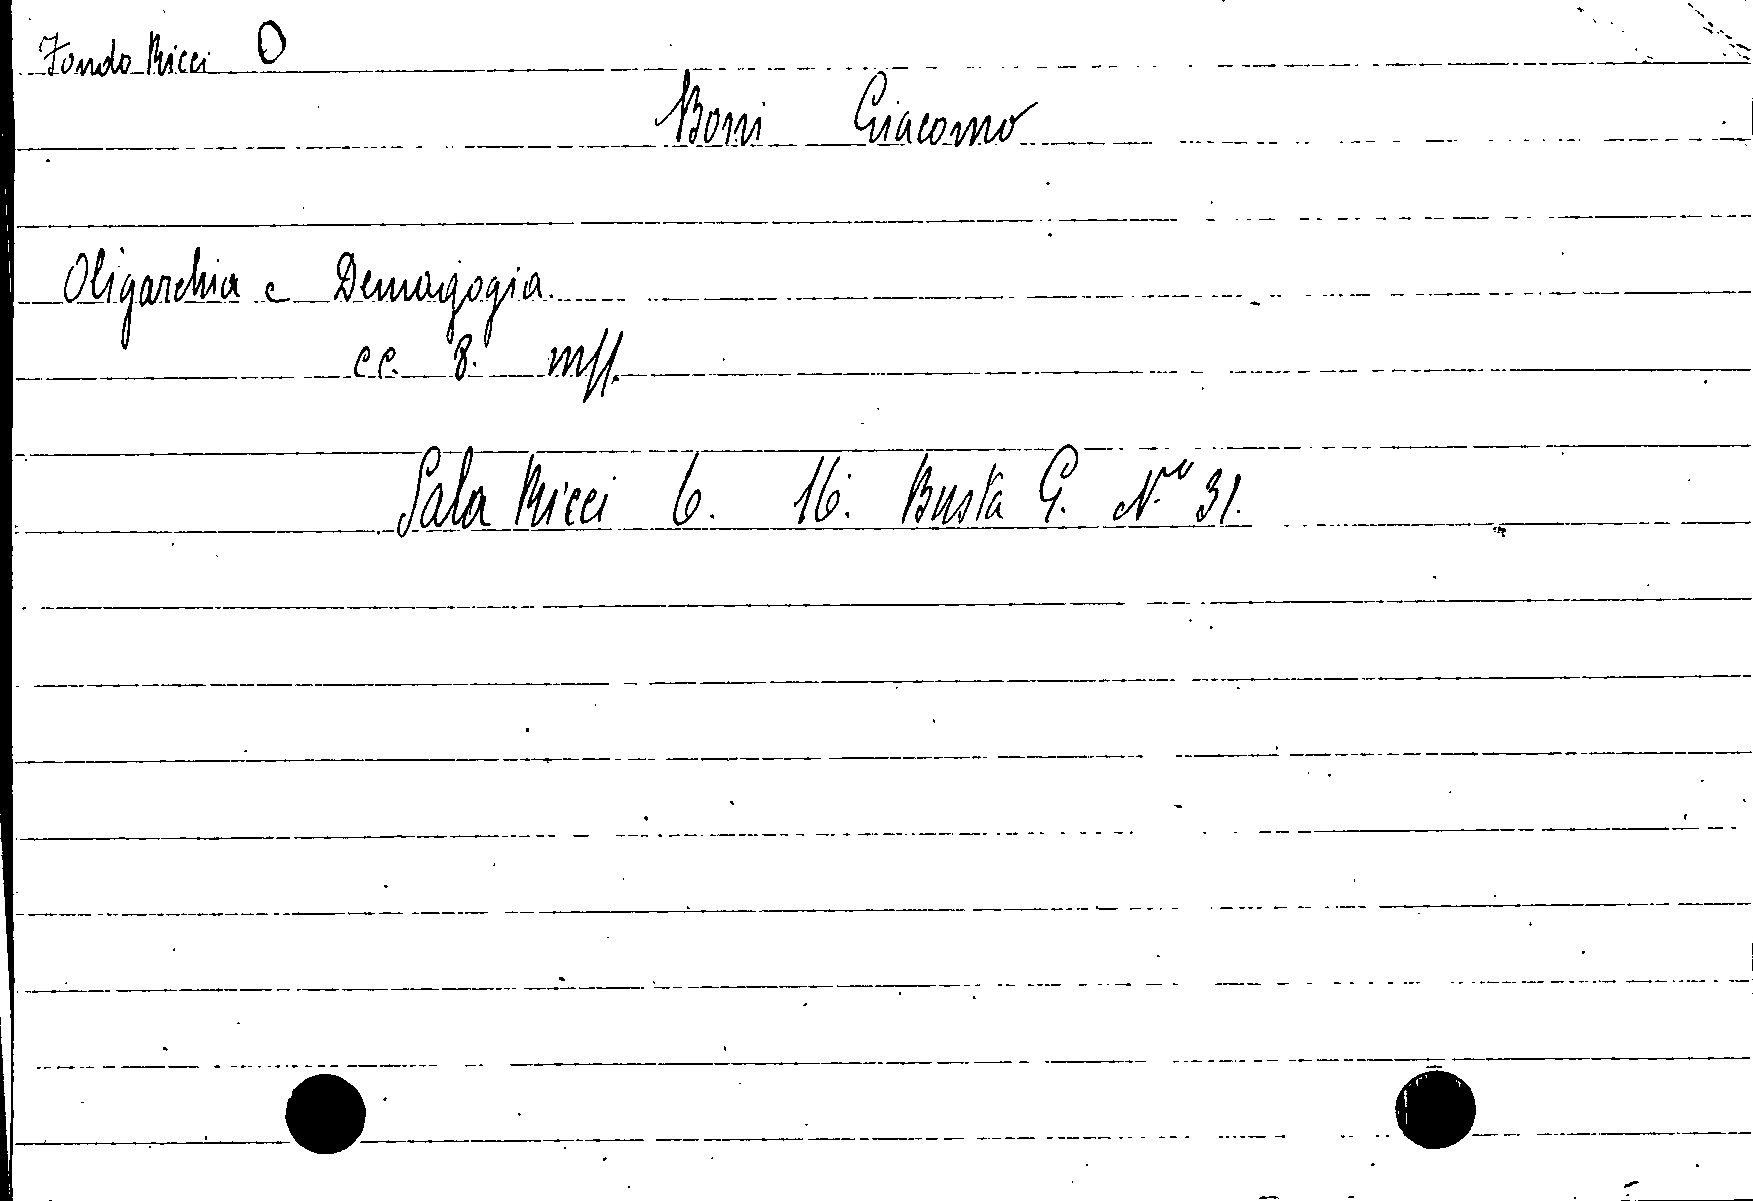 Fondo Ricci O
Boni Giacomo
Oligarchia e Demagogia.
cc. 8. mss.
Sala Ricci 6. 16. Busta G. N.º 31.